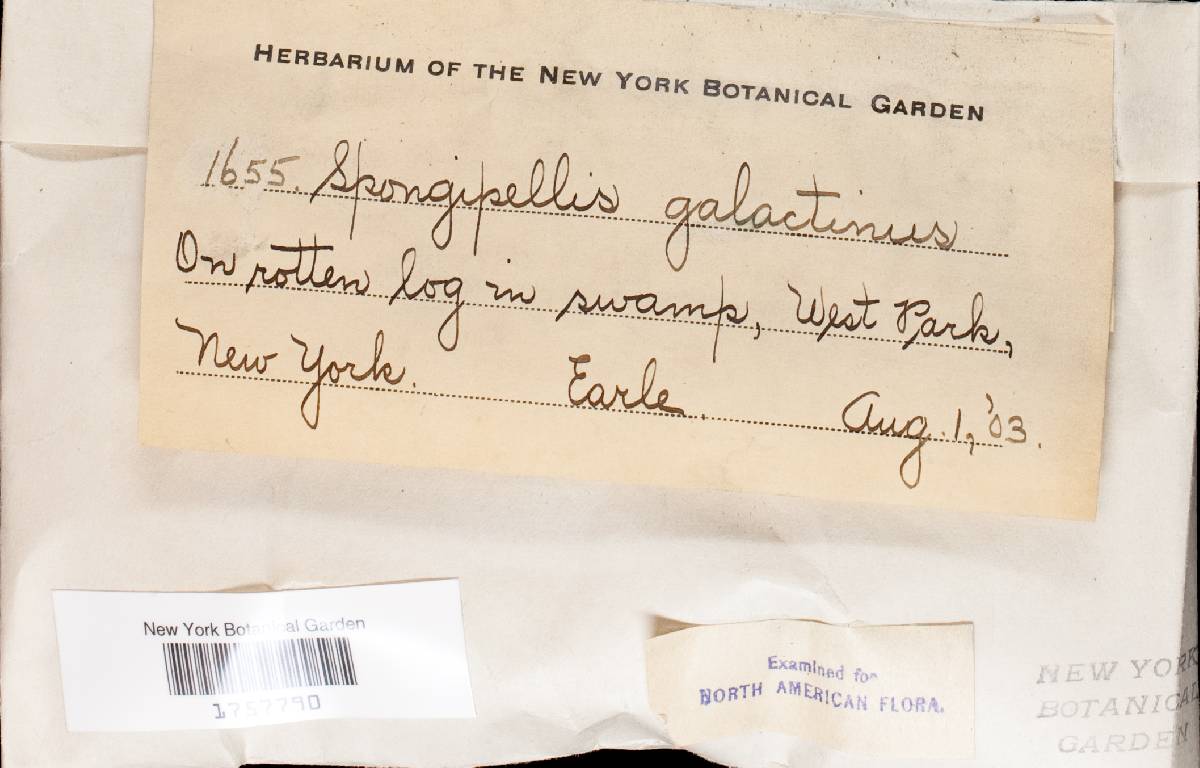 HERBARIUM OF THE NEW YORK BOTANICAL GARDEN
1655. Spongipellis galactinus
On rotten log in swamp, West Park,
New York. Earle. Aug. 1, '03.
New York Botanical Garden
1757790
Examined for
NORTH AMERICAN FLORA.
NEW YORK
BOTANICAL
GARDEN